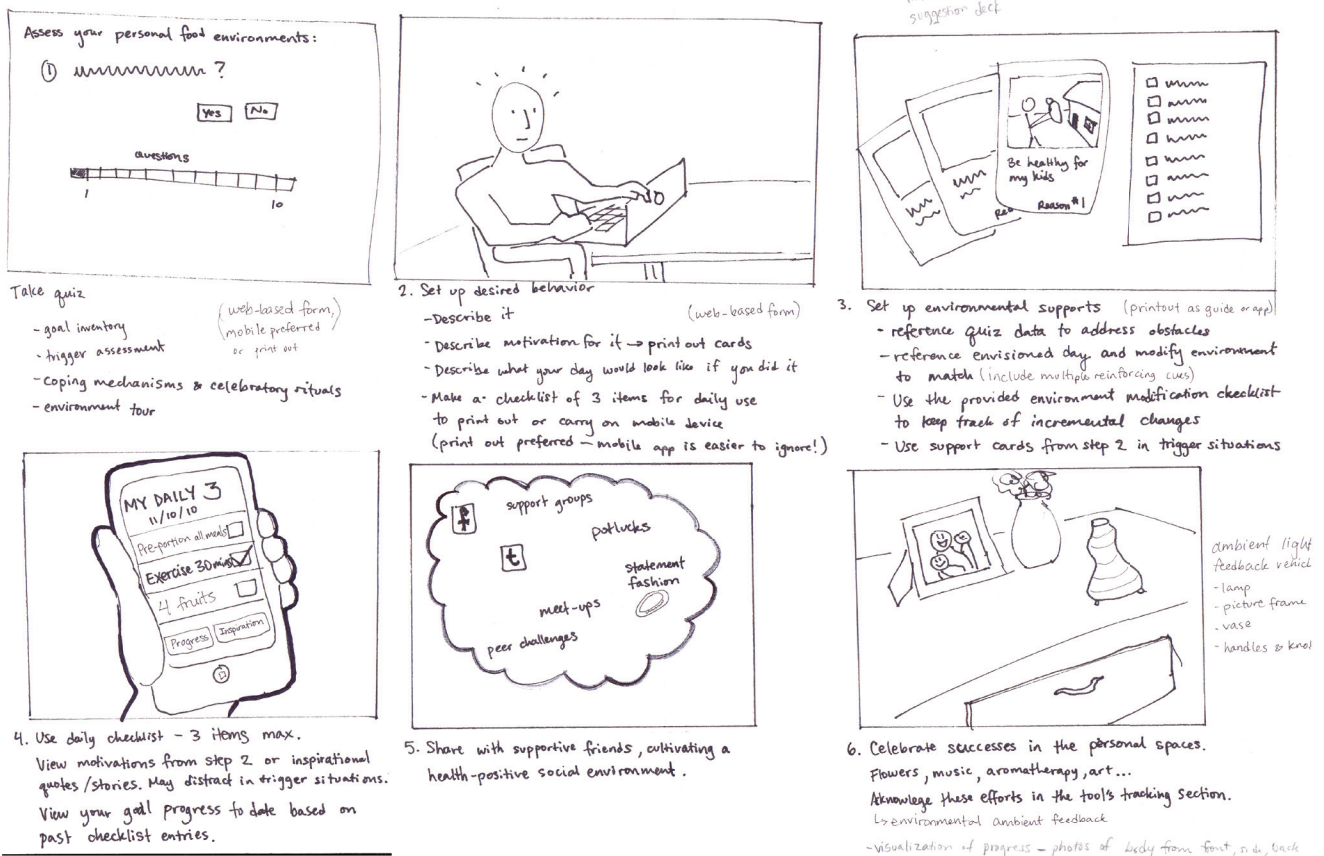 suggestion deck
Assess your personal food environments:
1 ?
Yes No
questions
1 10
Take quiz
(web-based form,
mobile preferred
or print out
- goal inventory
- trigger assessment
- coping mechanisms & celebratory rituals
- environment tour
2. Set up desired behavior
(web-based form)
- Describe it
- Describe motivation for it → print out cards
- Describe what your day would look like if you did it
- Make a checklist of 3 items for daily use
to print out or carry on mobile device
(print out preferred – mobile app is easier to ignore!)
Be healthy for
my kids
Reason #1
3. Set up environmental supports (printout as guide or app)
- reference quiz data to address obstacles
- reference envisioned day and modify environment
to match (include multiple reinforcing cues)
- Use the provided environment modification checklist
to keep track of incremental changes
- Use support cards from step 2 in trigger situations
MY DAILY 3
11/10/10
Pre-portion all meals
Exercise 30 mins
4 fruits
Progress Inspiration
4. Use daily checklist – 3 items max.
View motivations from step 2 or inspirational
quotes/stories. May distract in trigger situations.
View your goal progress to date based on
past checklist entries.
f support groups
potlucks
t
statement
fashion
meet-ups
peer challenges
5. Share with supportive friends, cultivating a
health-positive social environment.
ambient light
feedback vehicl
- lamp
- picture frame
- vase
- handles & knob
6. Celebrate successes in the personal spaces.
Flowers, music, aromatherapy, art...
Acknowlege these efforts in the tool's tracking section.
↳ environmental ambient feedback
- visualization of progress – photos of body from font, side, back